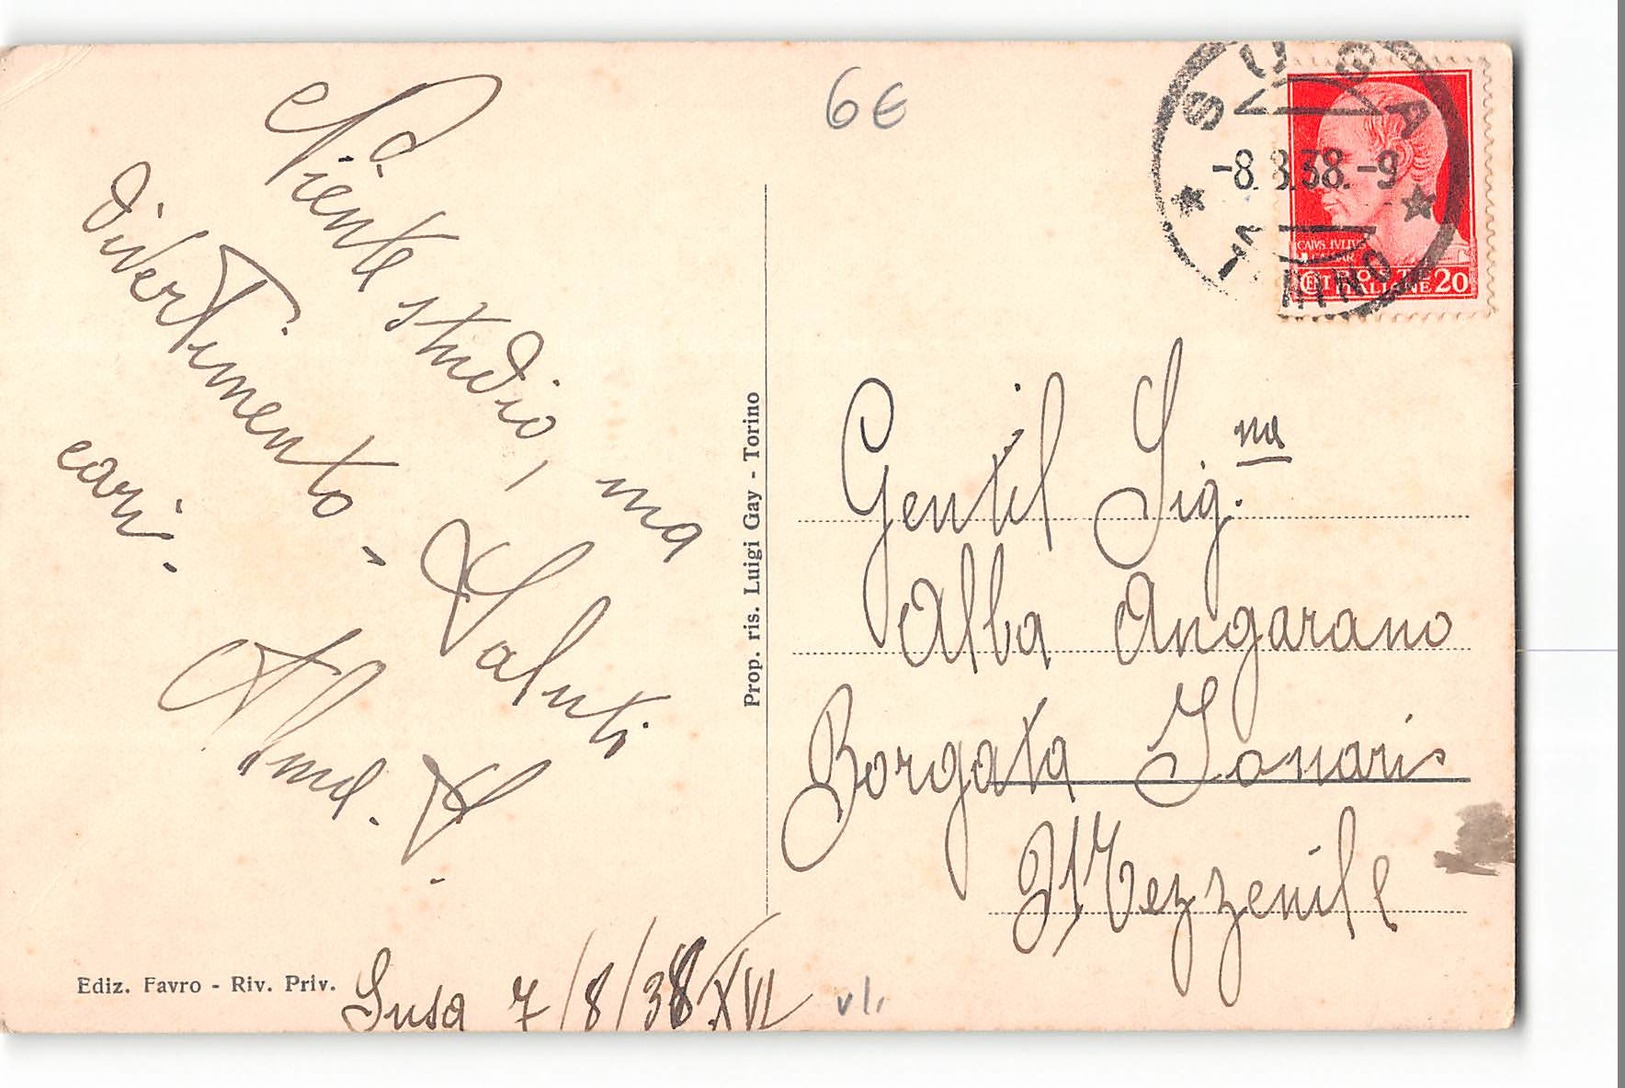 Niente studio, ma
divertimento - Saluti
cari.
6€
SUSA
-8.8.38.-9
CAIVS IVLIVS
POSTE
ITALIANE 20
Gentil Sig.na
Alba Angarano
Borgata
Mezzenile
Prop. ris. Luigi Gay - Torino
Ediz. Favro - Riv. Priv.
Susa 7/8/38 XVI